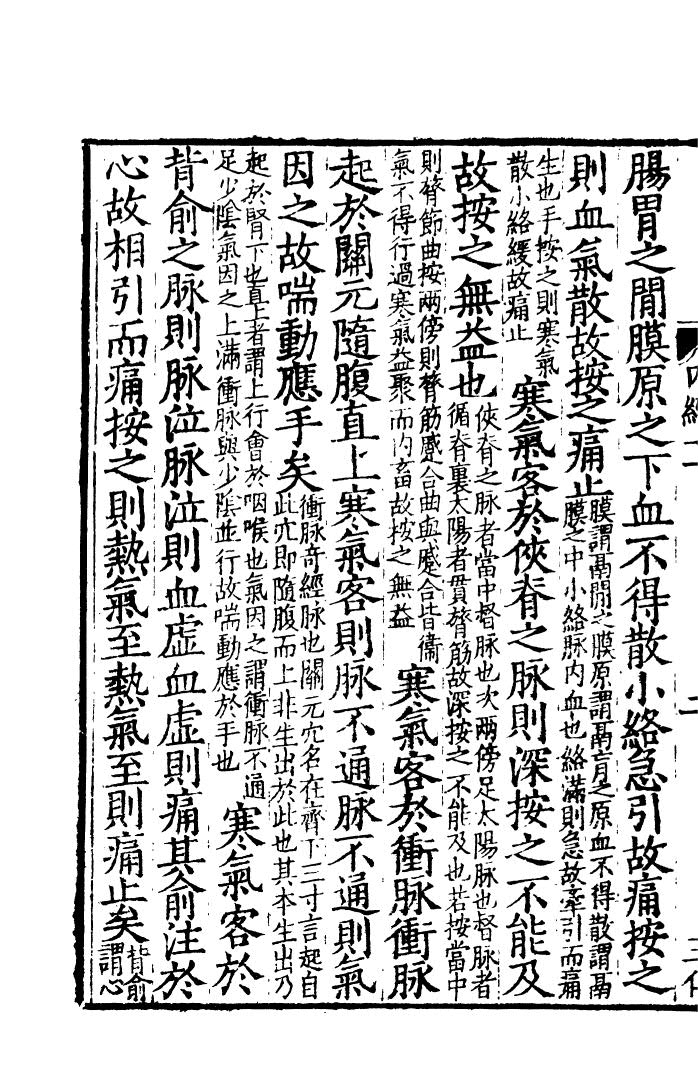 腸胃之閒膜原之下血不得散小絡急引故痛按之
則血氣散故按之痛止
膜謂鬲閒之膜原謂鬲肓之原血不得散謂鬲
膜之中小絡脉内血也絡滿則急故牽引而痛
生也手按之則寒氣
散小絡緩故痛止
寒氣客於俠脊之脉則深按之不能及
故按之無益也
俠脊之脉者當中督脉也次兩傍足太陽脉也督脉者
循脊裏太陽者貫膂筋故深按之不能及也若按當中
則膂節曲按兩傍則膂筋蹙合曲與蹙合皆衞
氣不得行過寒氣益聚而内畜故按之無益
寒氣客於衝脉衝脉
起於關元隨腹直上寒氣客則脉不通脉不通則氣
因之故喘動應手矣
衝脉奇經脉也關元穴名在齊下三寸言起自
此穴即隨腹而上非生出於此也其本生出乃
起於腎下也直上者謂上行會於咽喉也氣因之謂衝脉不通
足少陰氣因之上滿衝脉與少陰並行故喘動應於手也
寒氣客於
背俞之脉則脉泣脉泣則血虛血虛則痛其俞注於
心故相引而痛按之則熱氣至熱氣至則痛止矣
背俞
謂心